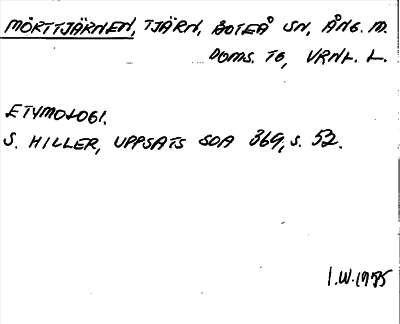 MÖRTTJÄRNEN, TJÄRN, BOTEÅ SN, ÅNG. M.
DOMS. TG, VRNL. L.
ETYMOLOGI.
S. HILLER, UPPSATS SOA 369, S. 52.
I.W. 1975